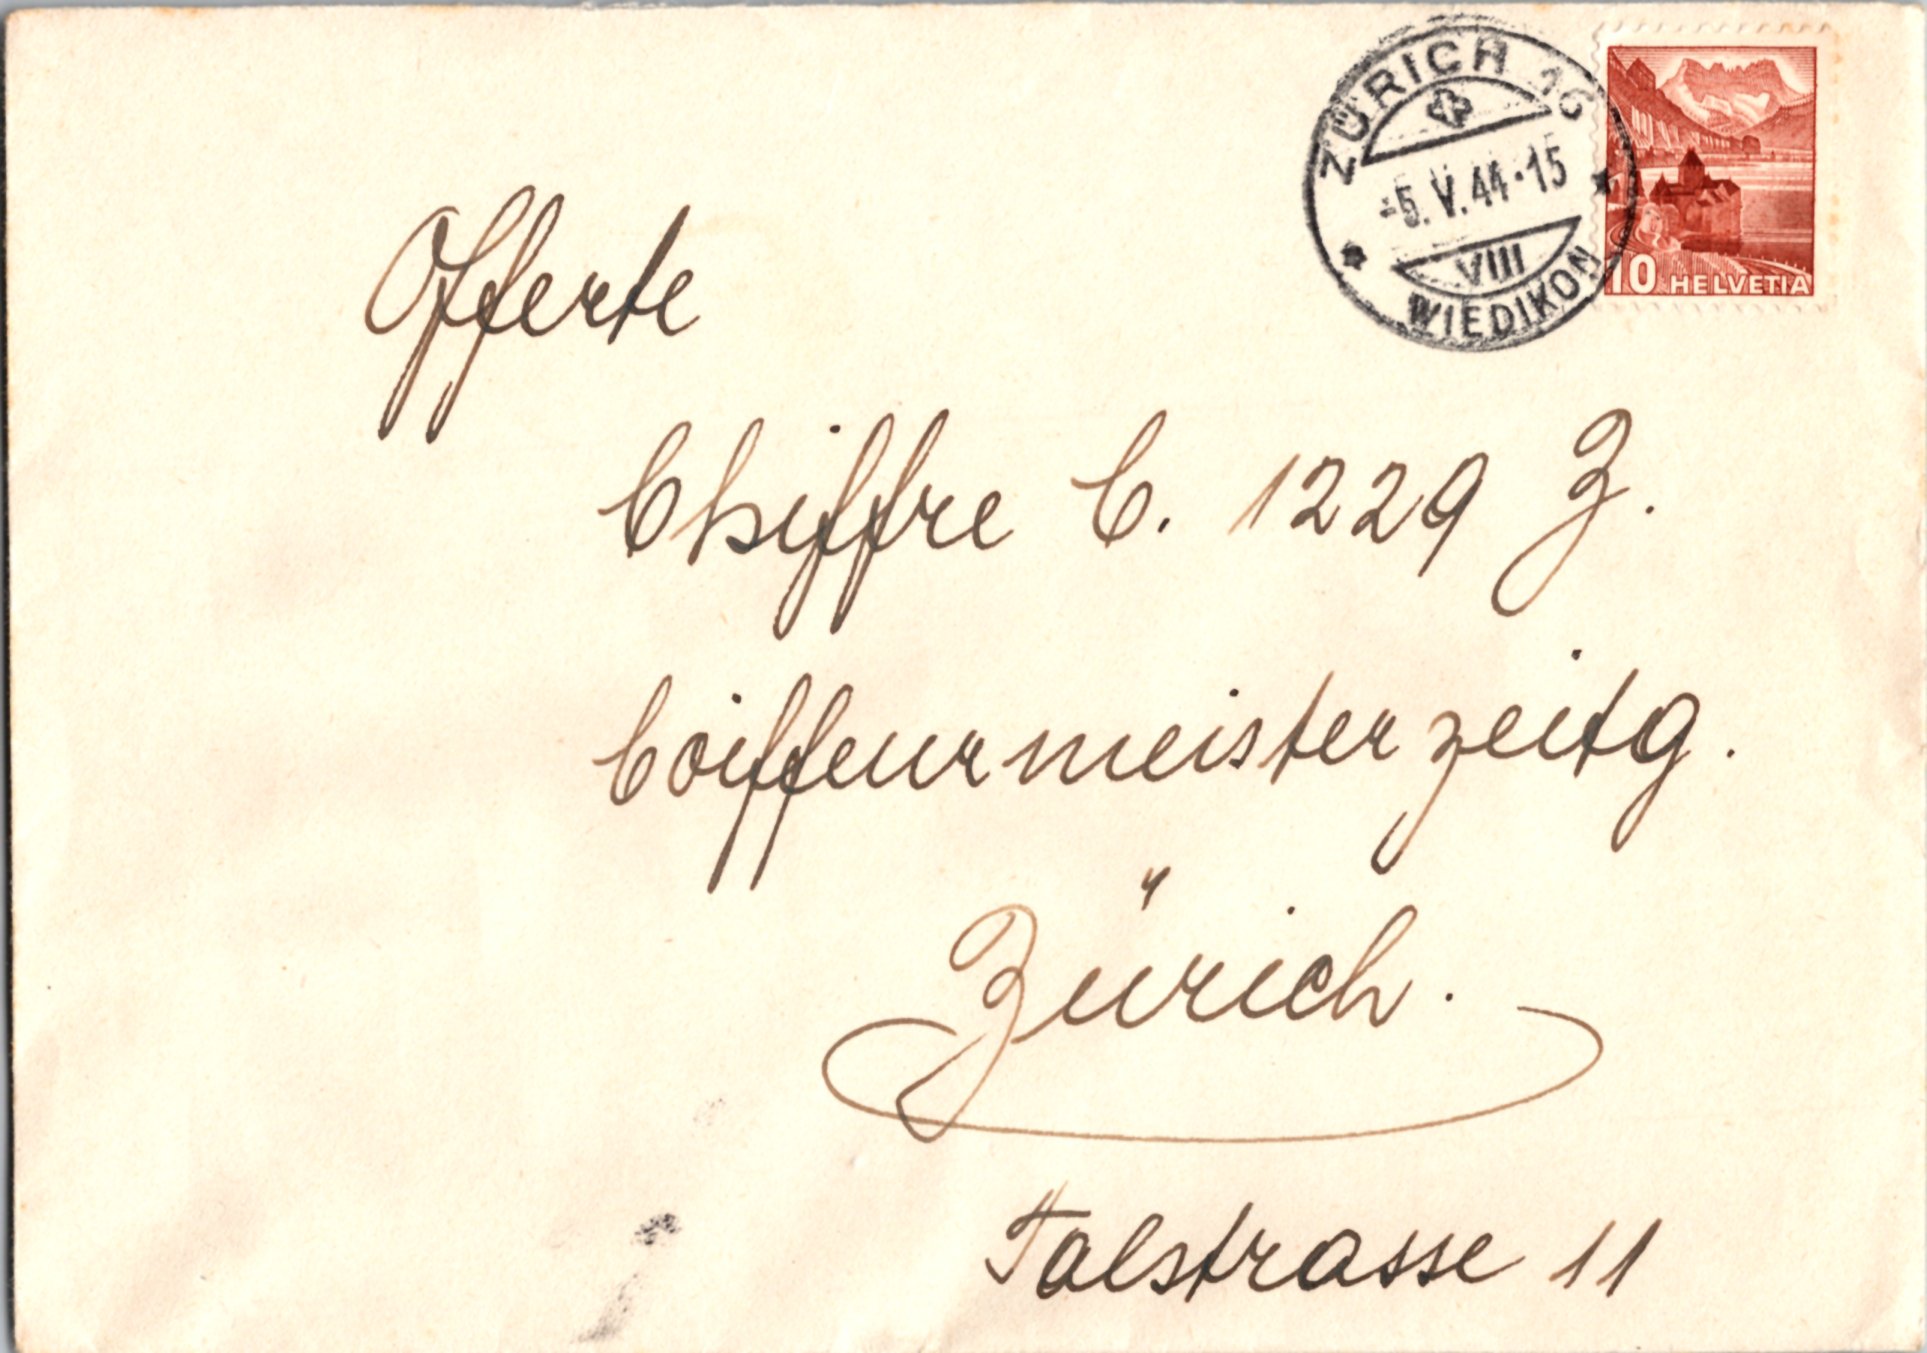 ZÜRICH 16
-5. V. 44·15
VIII
WIEDIKON
10 HELVETIA
Offerte
Chiffre C. 1229 Z.
Coiffeurmeisterzeitg.
Zürich.
Talstrasse 11